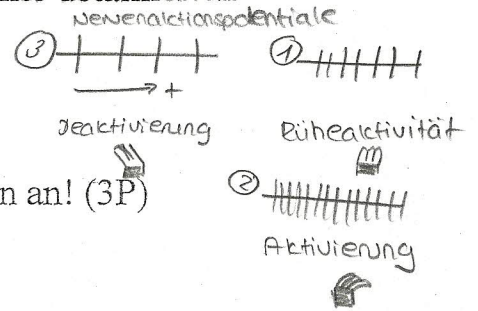 Nervenaktionspotentiale
3
1
+
Deaktivierung
Ruheaktivität
n an! (3P)
2
Aktivierung